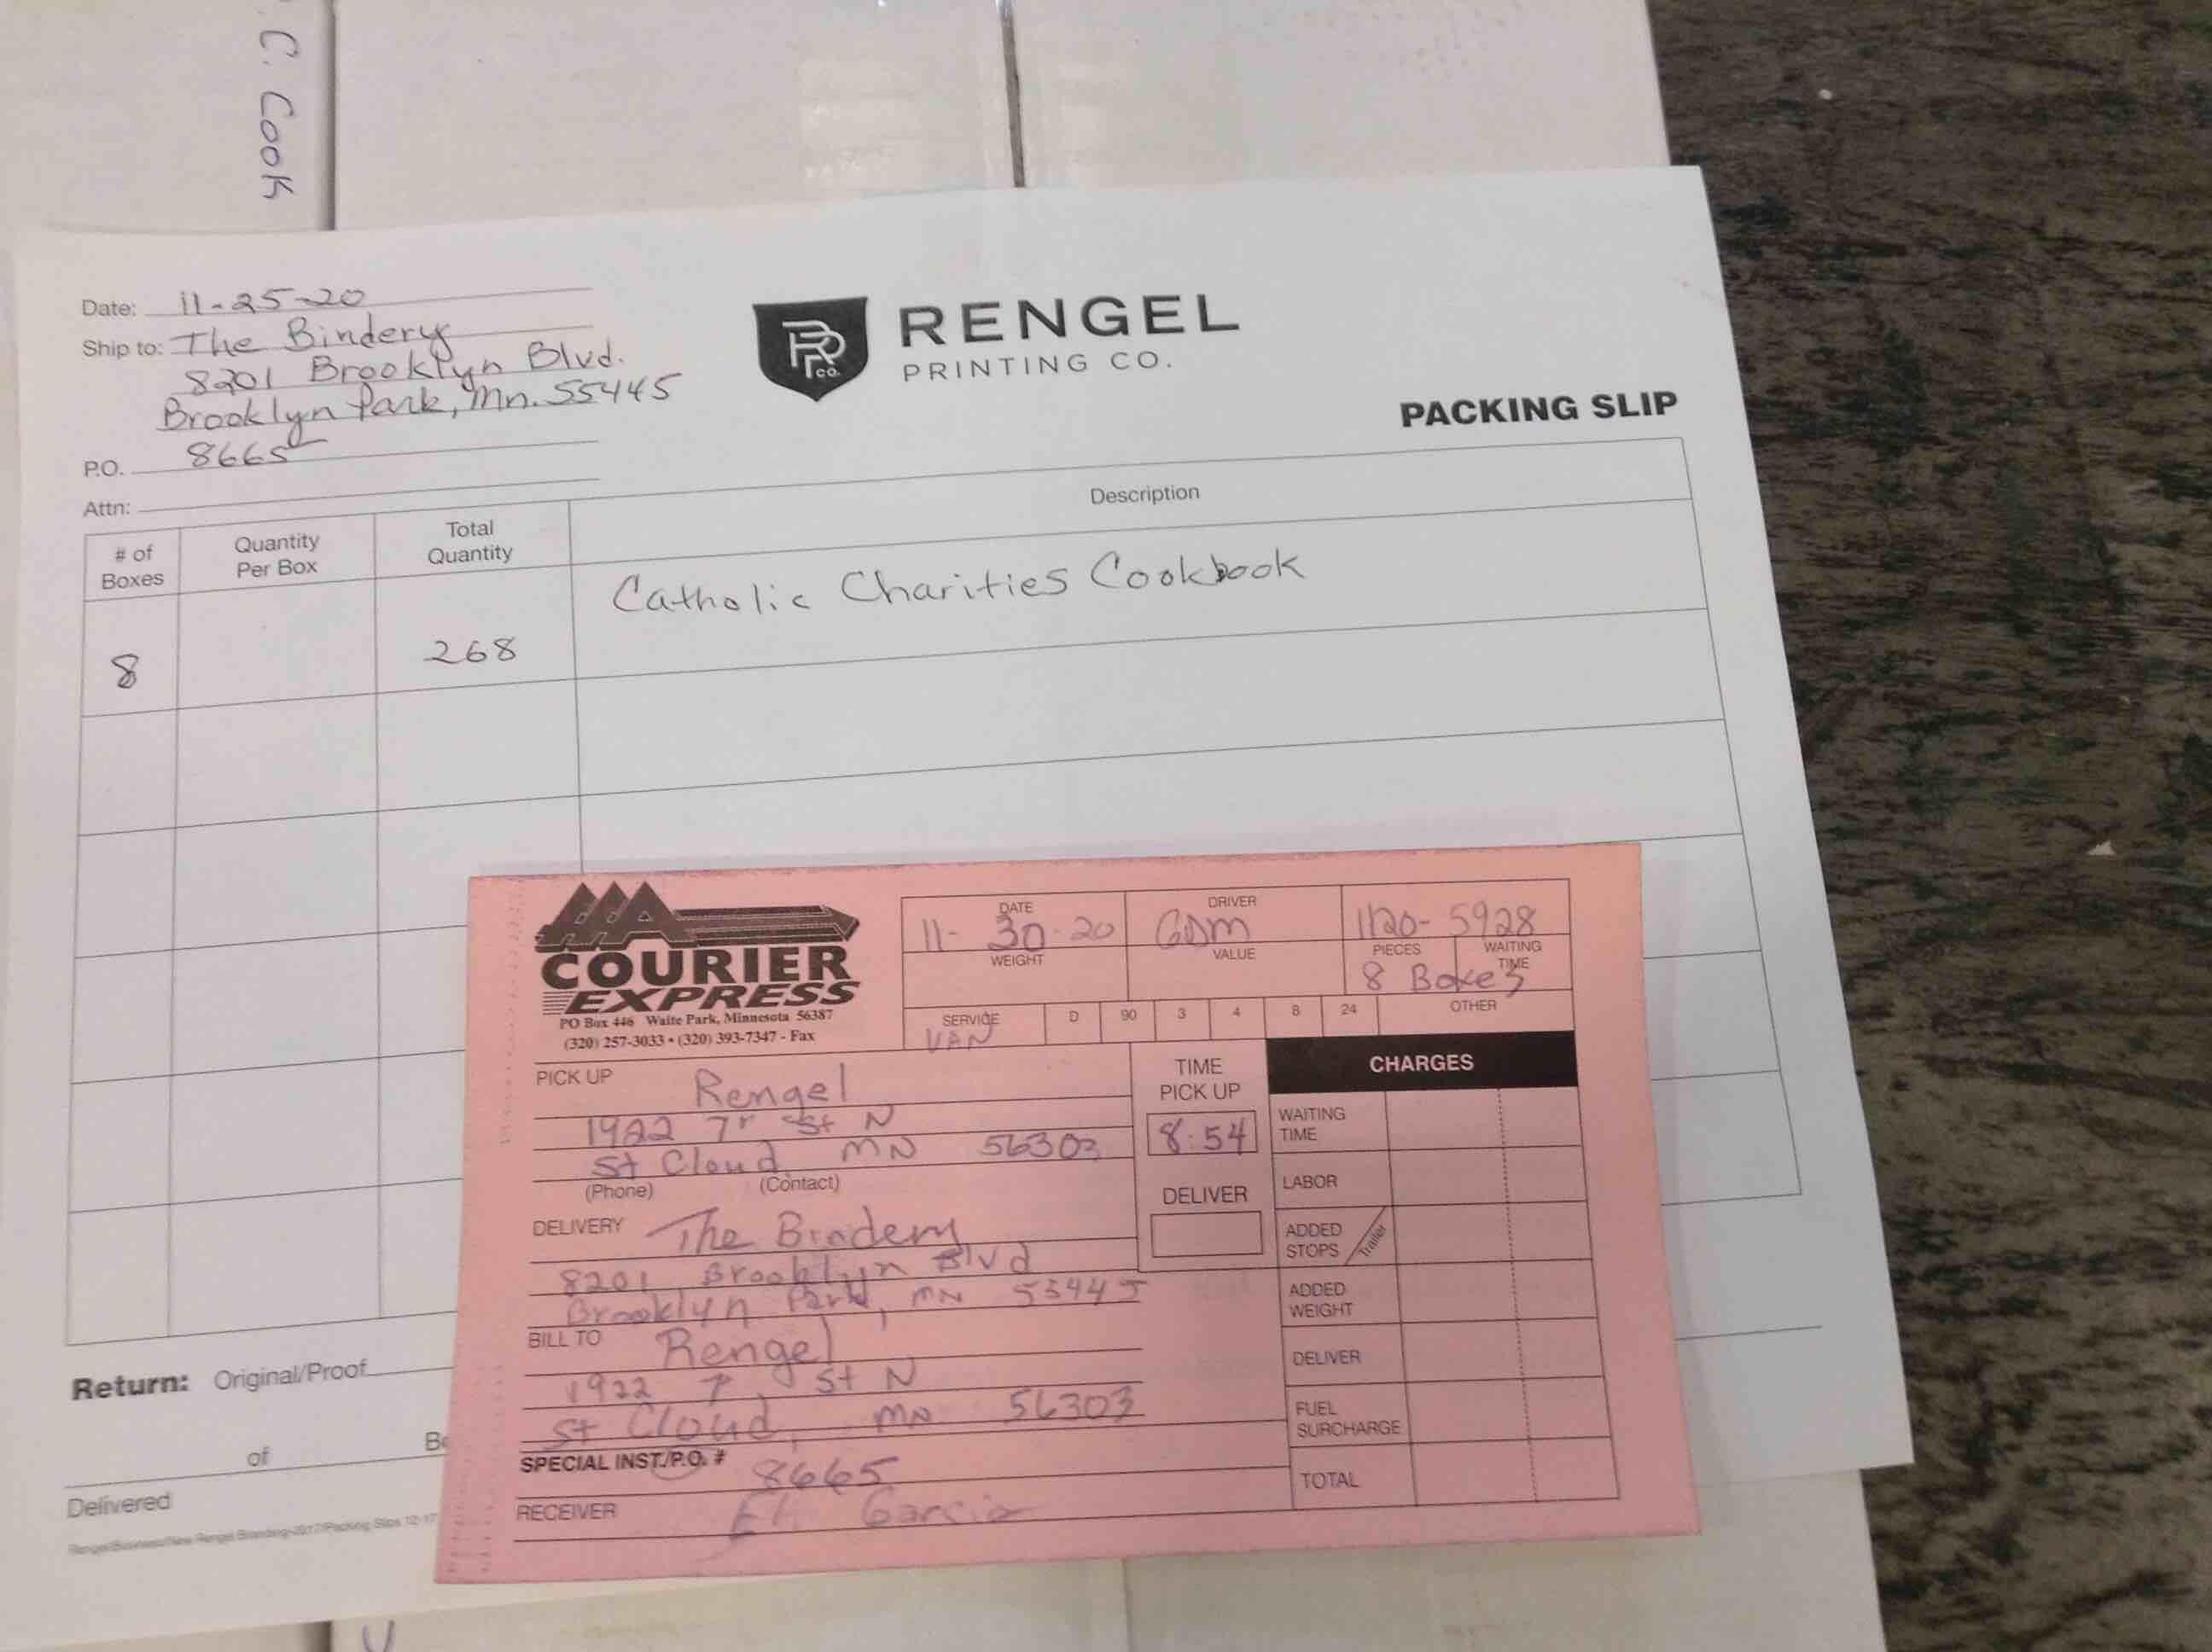 C. Cook
Date: 11-25-20
Ship to: The Bindery
8201 Brooklyn Blvd.
Brooklyn Park, Mn. 55445
P.O. 8665
Attn:
RENGEL
PRINTING CO.
PACKING SLIP
# of Boxes Quantity Per Box Total Quantity Description
8 268 Catholic Charities Cookbook
COURIER
EXPRESS
PO Box 446 Waite Park, Minnesota 56387
(320) 257-3033 • (320) 393-7347 - Fax
DATE DRIVER
11-30-20 GDM 1120-5928
WEIGHT VALUE PIECES WAITING TIME
8 Boxes
SERVICE D 90 3 4 8 24 OTHER
VAN
PICK UP Rengel
1922 7 St N
St Cloud MN 56303
(Phone) (Contact)
TIME
PICK UP
8:54
DELIVER
DELIVERY The Bindery
8201 Brooklyn Blvd
Brooklyn Park, MN 55445
BILL TO Rengel
1922 7 St N
St Cloud, MN 56303
SPECIAL INST./P.O. # 8665
RECEIVER Garcia
CHARGES
WAITING TIME
LABOR
ADDED STOPS Trailer
ADDED WEIGHT
DELIVER
FUEL SURCHARGE
TOTAL
Return: Original/Proof
of
Delivered